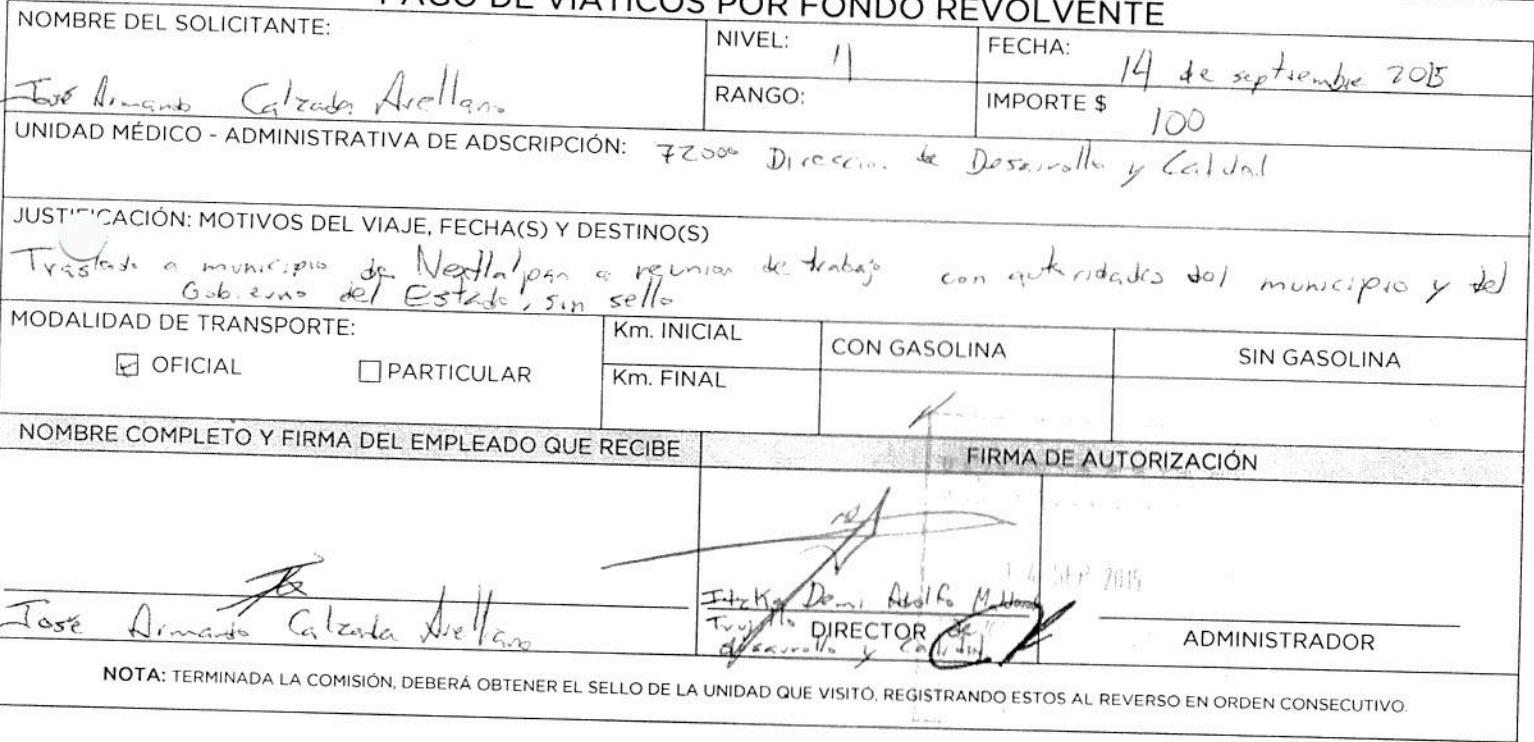 PAGO DE VIÁTICOS POR FONDO REVOLVENTE
NOMBRE DEL SOLICITANTE:
José Armando Calzada Arellano
NIVEL: 11
FECHA: 14 de septiembre 2015
RANGO:
IMPORTE $ 100
UNIDAD MÉDICO - ADMINISTRATIVA DE ADSCRIPCIÓN: 72000 Direccion de Desarrollo y Calidad
JUSTIFICACIÓN: MOTIVOS DEL VIAJE, FECHA(S) Y DESTINO(S)
Traslado a municipio de Nextlalpan a reunion de trabajo con autoridades del municipio y del
Gobierno del Estado, sin sello
MODALIDAD DE TRANSPORTE:
OFICIAL
PARTICULAR
Km. INICIAL
Km. FINAL
CON GASOLINA
SIN GASOLINA
NOMBRE COMPLETO Y FIRMA DEL EMPLEADO QUE RECIBE
FIRMA DE AUTORIZACIÓN
José Armando Calzada Arellano
14 SEP 2015
Demi Adolfo
DIRECTOR de
desarrollo y Calidad
ADMINISTRADOR
NOTA: TERMINADA LA COMISIÓN, DEBERÁ OBTENER EL SELLO DE LA UNIDAD QUE VISITÓ, REGISTRANDO ESTOS AL REVERSO EN ORDEN CONSECUTIVO.